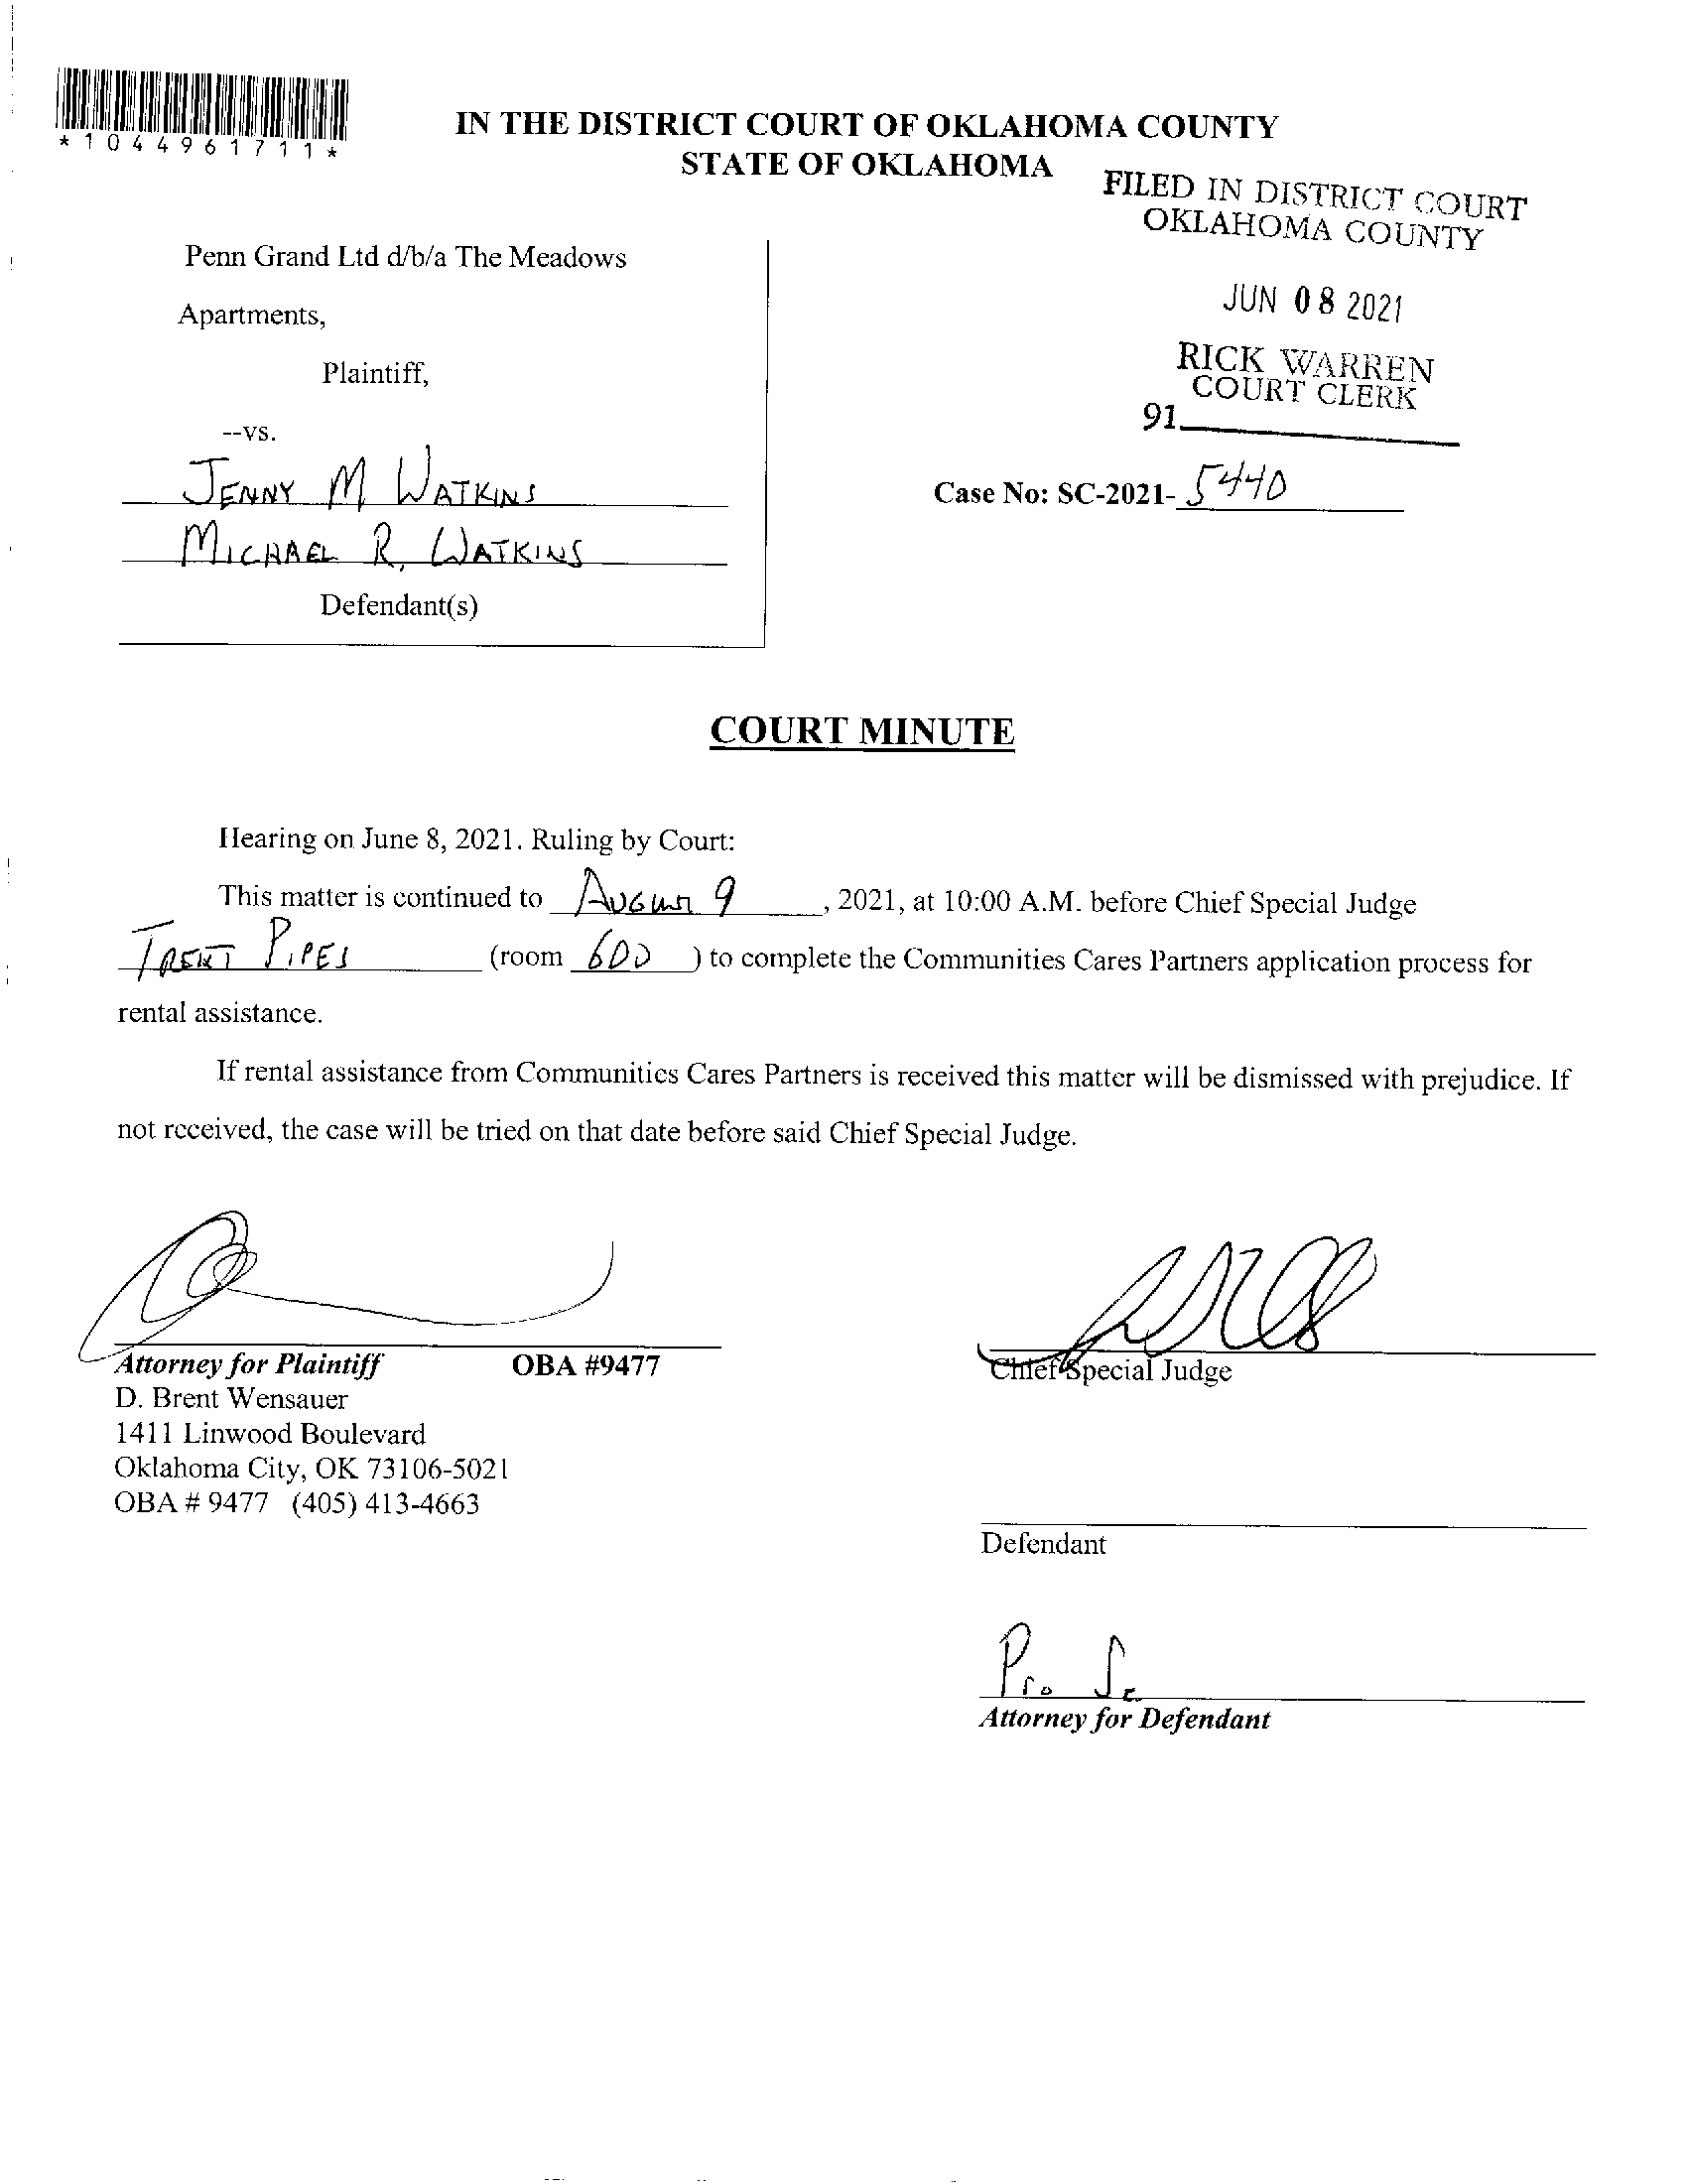 *1044961711*
IN THE DISTRICT COURT OF OKLAHOMA COUNTY
STATE OF OKLAHOMA
FILED IN DISTRICT COURT
OKLAHOMA COUNTY
JUN 08 2021
RICK WARREN
COURT CLERK
91
Penn Grand Ltd d/b/a The Meadows
Apartments,
Plaintiff,
--vs.
JENNY M WATKINS
MICHAEL R. WATKINS
Defendant(s)
Case No: SC-2021- 5440
COURT MINUTE
Hearing on June 8, 2021. Ruling by Court:
This matter is continued to AUGUST 9, 2021, at 10:00 A.M. before Chief Special Judge
TRENT PIPES (room 600) to complete the Communities Cares Partners application process for
rental assistance.
If rental assistance from Communities Cares Partners is received this matter will be dismissed with prejudice. If
not received, the case will be tried on that date before said Chief Special Judge.
Attorney for Plaintiff OBA #9477
D. Brent Wensauer
1411 Linwood Boulevard
Oklahoma City, OK 73106-5021
OBA # 9477 (405) 413-4663
Chief Special Judge
Defendant
Pro Se
Attorney for Defendant